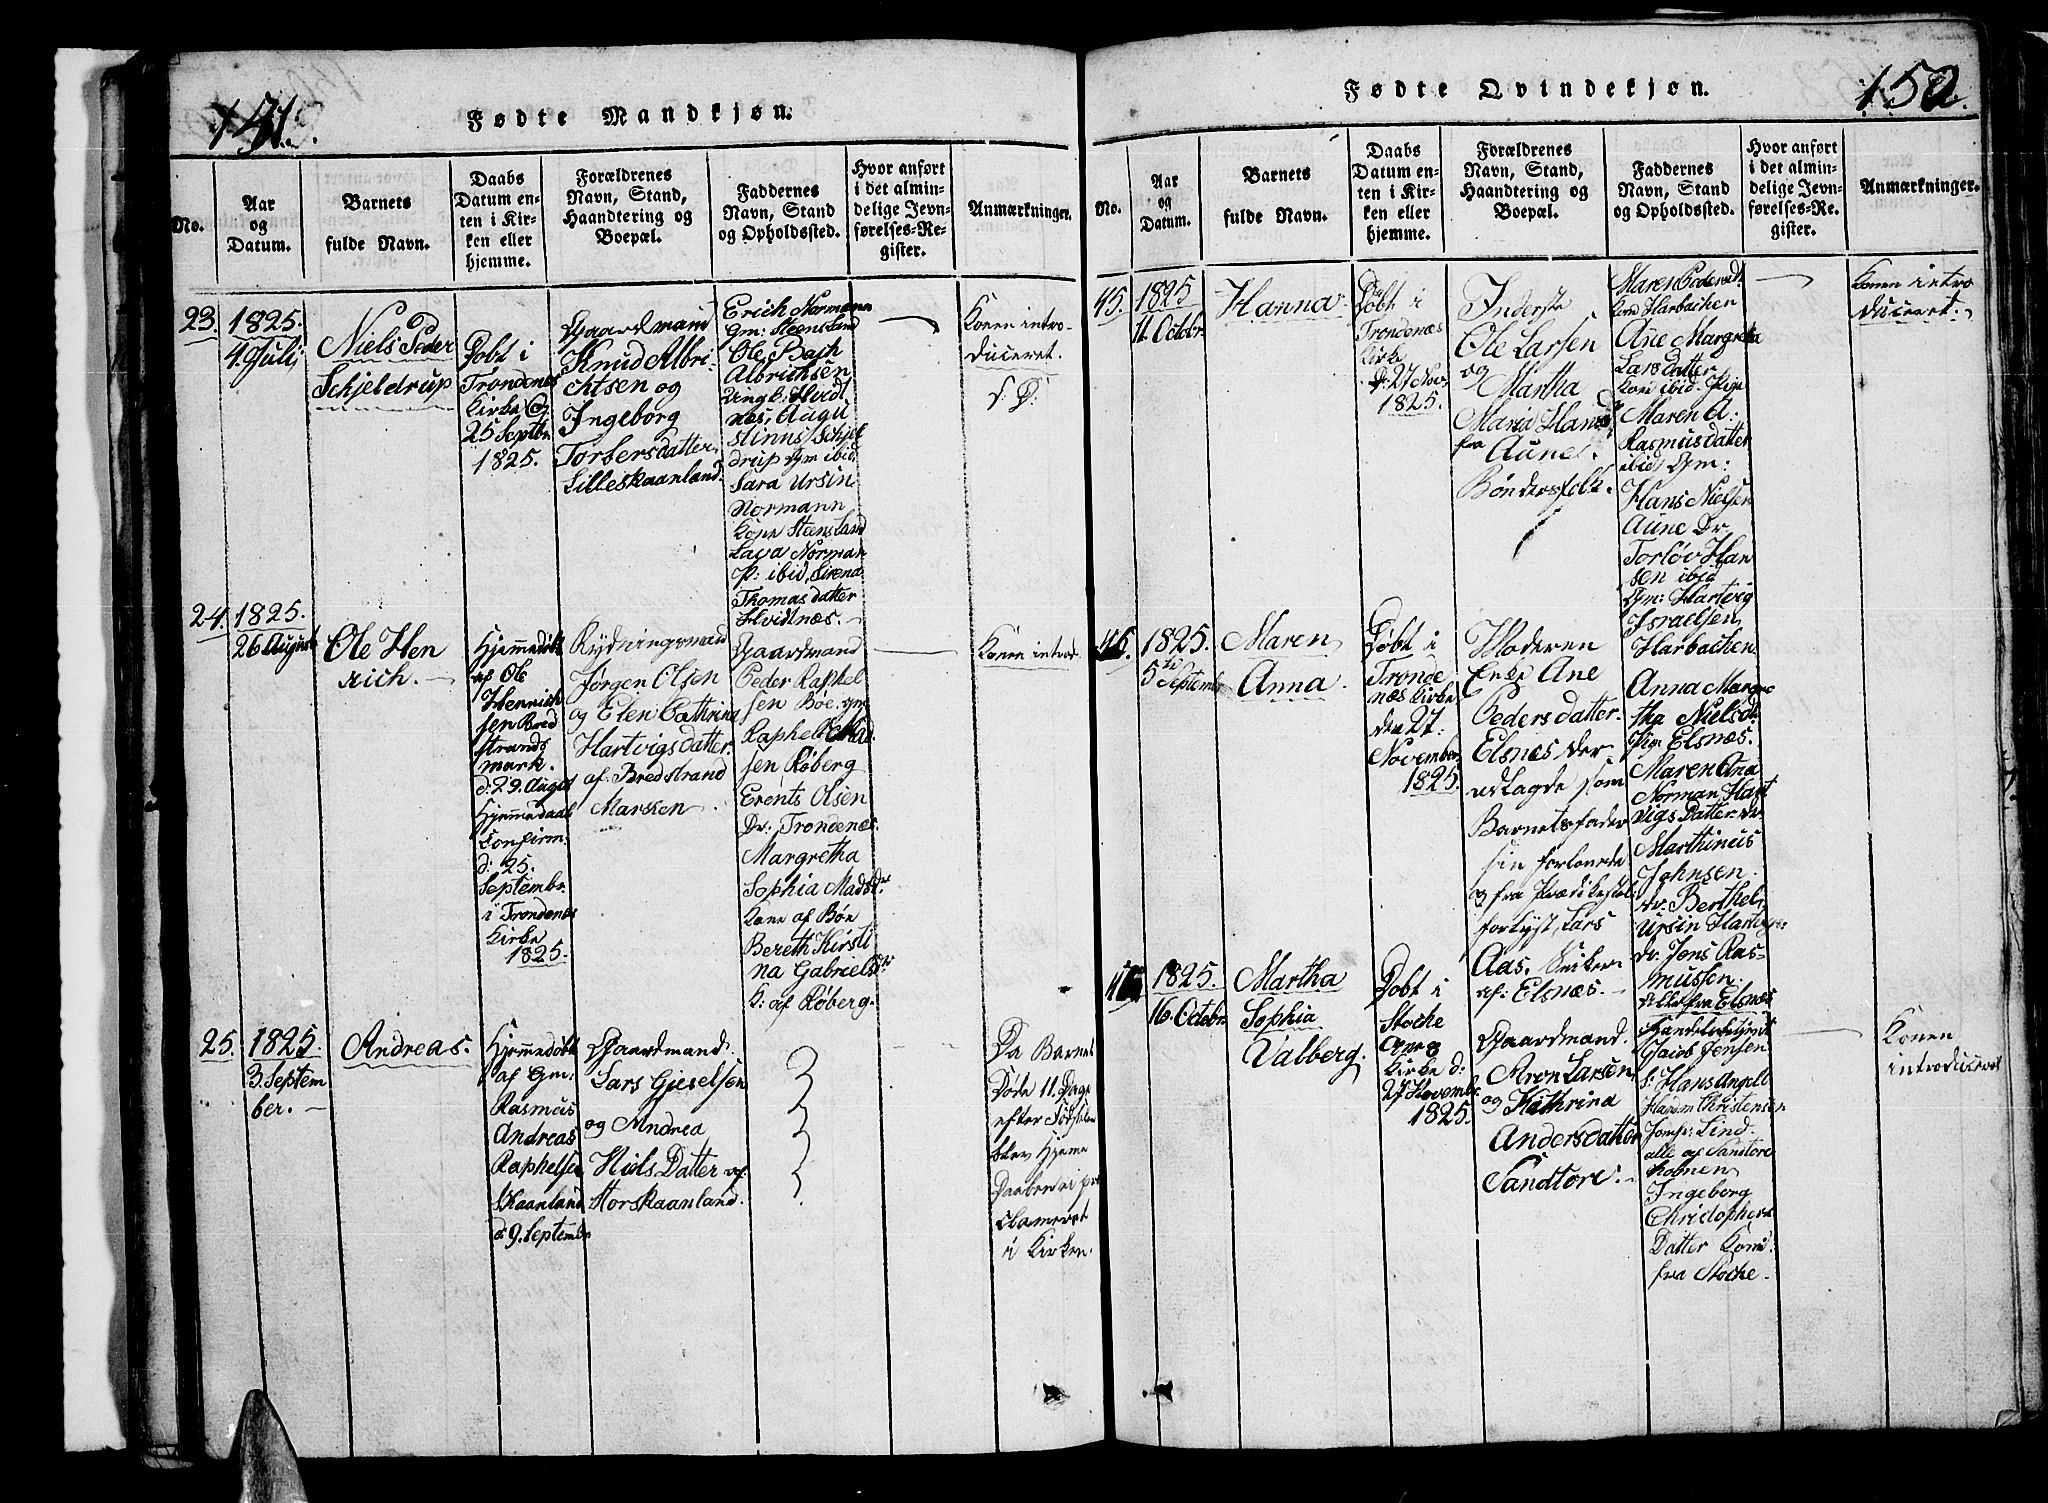 Fødte Mandkjøn.
No.
Aar
og
Datum.
Barnets
fulde Navn.
Daabs
Datum en-
ten i Kir-
ken eller
hjemme.
Forældrenes
Navn, Stand,
Haandtering og
Boepæl.
Faddernes
Navn, Stand
og Opholdssted.
Hvor anført
i det almin-
delige Jevn-
førelses-Re-
gister.
Anmærkninger.
23.
1825.
4. Julj
Niels Peder
Schjeldrup
Døbt i
Trondenes
Kirke
25 Septbr
1825.
Gaardmand
Knud Albri-
chtsen og
Ingeborg
Torbersdatter
Lilleskaanland.
Erich Normann
Gm: Steensland
Ole Bach
Albrichsen
Ungk: Hvidt
næs, Augu
stinus Schjel
drup Gm ibid
Sara Ursin
Normann
Kone Steensland
Norman
P: ibid, Sirena
Thomasdatter
Hvidtnæs.
Konen intro-
duceret.
24.
1825.
26 August
Ole Hen
rich.
Hjemmedøbt
af Ole
Henrich
sen Bred
strands
mark.
d: 29. August
Hjemmedaab
Confirm.
d: 25.
Septembr.
i Trondenæs
Kirke
1825.
Rydningsmand
Jørgen Olsen
og Elen Cathrina
Hartvigsdatter.
af Bredstrand
Marken
Gaardmand
Peder Raphel
sen Bøe. gm
Raphel
sen Røberg
Erents Olsen
Dr: Trondenæs.
Margretha
Sophia Madsdr
Kone af Böe
Bereth Kirsti
na Gabrielsdr:
K: af Røberg.
Konen introd.
25.
1825.
3. Septem
ber.
Andreas.
Hjemmedøbt
af Gm:
Rasmus
Andreas
Raphelsen
Skaanland
d: 9. Septembr
Gaardmand.
Lars Gieselsen
og Andrea
Niels Datter af
Storskaanland.
Da Barnet
Døde 11. Dage
efter Fødselen
blev Hjeme
Daaben ei pro
clameret
i Kirken.
Fødte Qvindekjøn.
152.
No.
Aar
og
Datum.
Barnets
fulde Navn.
Daabs
Datum en-
ten i Kir-
ken eller
hjemme.
Forældrenes
Navn, Stand,
Haandtering og
Boepæl.
Faddernes
Navn, Stand
og Opholdssted.
Hvor anført
i det almin-
delige Jevn-
førelses-Re-
gister.
Anmærkninger.
45.
1825
11. Octobr
Hanna
Døbt i
Trondenæs
Kirke
D: 27 Nov:
1825.
Inderste
Ole Larsen
og
Martha
Maria Hansd
fra
Aune.
Bønderfolk.
Maren Pedersd:
Harbachen
Ane Margreta
Larsdatter
Kone ibid: Pige
Maren A.
Rasmusdatter
ibid, Gm:
Hans Nielsen
Aune Dr
Torlöv Han
sen ibid
Gm: Hartvig
Israelsen
Harbachen
Konen intro
duceret.
46.
1825.
5te Septembr
Maren
Anna
Døbt i
Tronde
næs Kirke
den 27:
November
1825.
Moderen
Enke Ane
Pedersdatter.
Elsnæs der
udlagde som
Barnetsfader
sin forlovede
og fra Prædikestol
forlyst, Lars
Aas.
af: Elsnæs.
Anna Margre
tha Nielsd:
Pige Elsnæs.
Maren Ana
Norman Hart
vigs Datter
Marthinus
Johnsen.
dr. Berthel,
Ursin
Dr. Jens Ras-
mussen
alle fra Elsnæs
1825.
16. Octobr
Martha
Sophia
Valberg.
Døbt i
Stoche
Kirke d:
27 Novembr
1825.
Gaardmand.
Aron Larsen
og Kathrina
Andersdatter
Sandtore.
Handelsbetjent
Jacob Jensen
Hans Angell
Christensen
Jomp: Lind.
alle af Sandtore
Konen
Ingeborg
Christophers
Datter Kone
fra Stoche.
Konen
introduceret